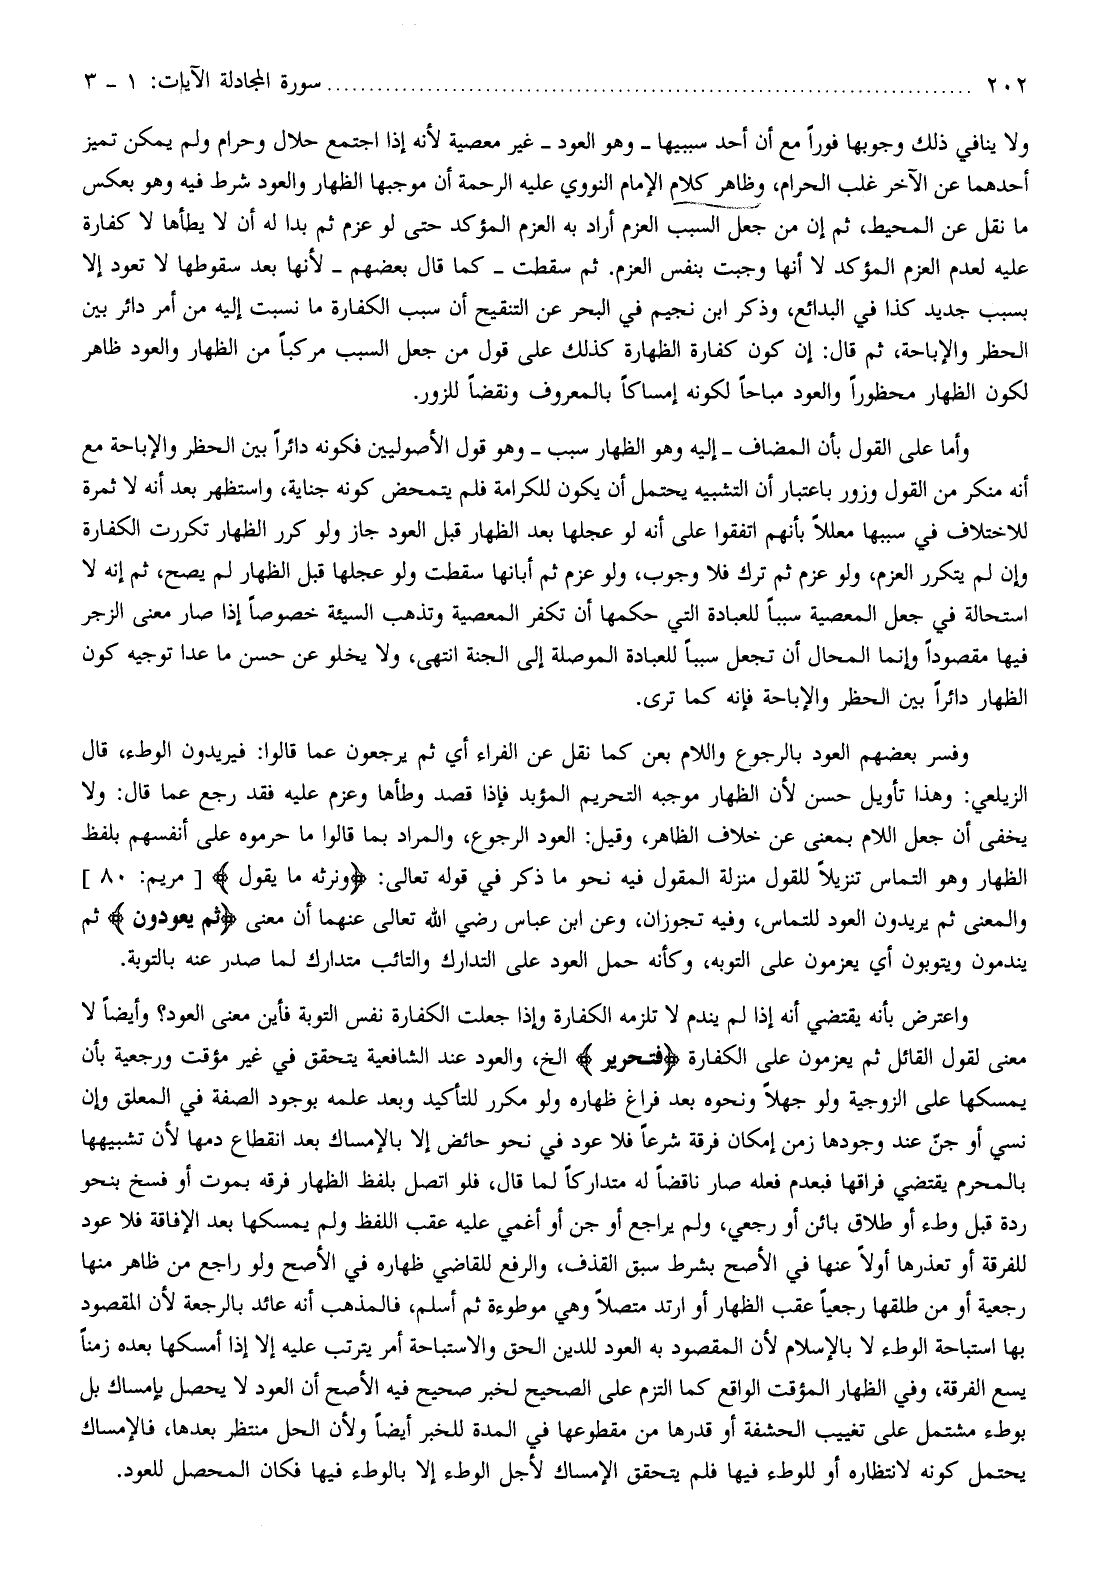 ٢٠٢ ........................................................................... سورة المجادلة الآيات: ١ - ٣
ولا ينافي ذلك وجوبها فوراً مع أن أحد سببيها ـ وهو العود ـ غير معصية لأنه إذا اجتمع حلال وحرام ولم يمكن تميز
أحدهما عن الآخر غلب الحرام، وظاهر كلام الإمام النووي عليه الرحمة أن موجبها الظهار والعود شرط فيه وهو بعكس
ما نقل عن المحيط، ثم إن من جعل السبب العزم أراد به العزم المؤكد حتى لو عزم ثم بدا له أن لا يطأها لا كفارة
عليه لعدم العزم المؤكد لا أنها وجبت بنفس العزم. ثم سقطت ـ كما قال بعضهم ـ لأنها بعد سقوطها لا تعود إلا
بسبب جديد كذا في البدائع، وذكر ابن نجيم في البحر عن التنقيح أن سبب الكفارة ما نسبت إليه من أمر دائر بين
الحظر والإباحة، ثم قال: إن كون كفارة الظهارة كذلك على قول من جعل السبب مركباً من الظهار والعود ظاهر
لكون الظهار محظوراً والعود مباحاً لكونه إمساكاً بالمعروف ونقضاً للزور.
وأما على القول بأن المضاف ـ إليه وهو الظهار سبب ـ وهو قول الأصوليين فكونه دائراً بين الحظر والإباحة مع
أنه منكر من القول وزور باعتبار أن التشبيه يحتمل أن يكون للكرامة فلم يتمحض كونه جناية، واستظهر بعد أنه لا ثمرة
للاختلاف في سببها معللاً بأنهم اتفقوا على أنه لو عجلها بعد الظهار قبل العود جاز ولو كرر الظهار تكررت الكفارة
وإن لم يتكرر العزم، ولو عزم ثم ترك فلا وجوب، ولو عزم ثم أبانها سقطت ولو عجلها قبل الظهار لم يصح، ثم إنه لا
استحالة في جعل المعصية سبباً للعبادة التي حكمها أن تكفر المعصية وتذهب السيئة خصوصاً إذا صار معنى الزجر
فيها مقصوداً وإنما المحال أن تجعل سبباً للعبادة الموصلة إلى الجنة انتهى، ولا يخلو عن حسن ما عدا توجيه كون
الظهار دائراً بين الحظر والإباحة فإنه كما ترى.
وفسر بعضهم العود بالرجوع واللام بعن كما نقل عن الفراء أي ثم يرجعون عما قالوا: فيريدون الوطء، قال
الزيلعي: وهذا تأويل حسن لأن الظهار موجبه التحريم المؤبد فإذا قصد وطأها وعزم عليه فقد رجع عما قال: ولا
يخفى أن جعل اللام بمعنى عن خلاف الظاهر، وقيل: العود الرجوع، والمراد بما قالوا ما حرموه على أنفسهم بلفظ
الظهار وهو التماس تنزيلاً للقول منزلة المقول فيه نحو ما ذكر في قوله تعالى: ﴿ونرثه ما يقول﴾ [ مريم: ٨٠ ]
والمعنى ثم يريدون العود للتماس، وفيه تجوزان، وعن ابن عباس رضي الله تعالى عنهما أن معنى ﴿ثم يعودون﴾ ثم
يندمون ويتوبون أي يعزمون على التوبه، وكأنه حمل العود على التدارك والتائب متدارك لما صدر عنه بالتوبة.
واعترض بأنه يقتضي أنه إذا لم يندم لا تلزمه الكفارة وإذا جعلت الكفارة نفس التوبة فأين معنى العود؟ وأيضاً لا
معنى لقول القائل ثم يعزمون على الكفارة ﴿فتحرير﴾ الخ، والعود عند الشافعية يتحقق في غير مؤقت ورجعية بأن
يمسكها على الزوجية ولو جهلاً ونحوه بعد فراغ ظهاره ولو مكرر للتأكيد وبعد علمه بوجود الصفة في المعلق وإن
نسي أو جنّ عند وجودها زمن إمكان فرقة شرعاً فلا عود في نحو حائض إلا بالإمساك بعد انقطاع دمها لأن تشبيهها
بالمحرم يقتضي فراقها فبعدم فعله صار ناقضاً له متداركاً لما قال، فلو اتصل بلفظ الظهار فرقه بموت أو فسخ بنحو
ردة قبل وطء أو طلاق بائن أو رجعي، ولم يراجع أو جن أو أغمي عليه عقب اللفظ ولم يمسكها بعد الإفاقة فلا عود
للفرقة أو تعذرها أولاً عنها في الأصح بشرط سبق القذف، والرفع للقاضي ظهاره في الأصح ولو راجع من ظاهر منها
رجعية أو من طلقها رجعياً عقب الظهار أو ارتد متصلاً وهي موطوءة ثم أسلم، فالمذهب أنه عائد بالرجعة لأن المقصود
بها استباحة الوطء لا بالإسلام لأن المقصود به العود للدين الحق والاستباحة أمر يترتب عليه إلا إذا أمسكها بعده زمناً
يسع الفرقة، وفي الظهار المؤقت الواقع كما التزم على الصحيح لخبر صحيح فيه الأصح أن العود لا يحصل بإمساك بل
بوطء مشتمل على تغييب الحشفة أو قدرها من مقطوعها في المدة للخبر أيضاً ولأن الحل منتظر بعدها، فالإمساك
يحتمل كونه لانتظاره أو للوطء فيها فلم يتحقق الإمساك لأجل الوطء إلا بالوطء فيها فكان المحصل للعود.